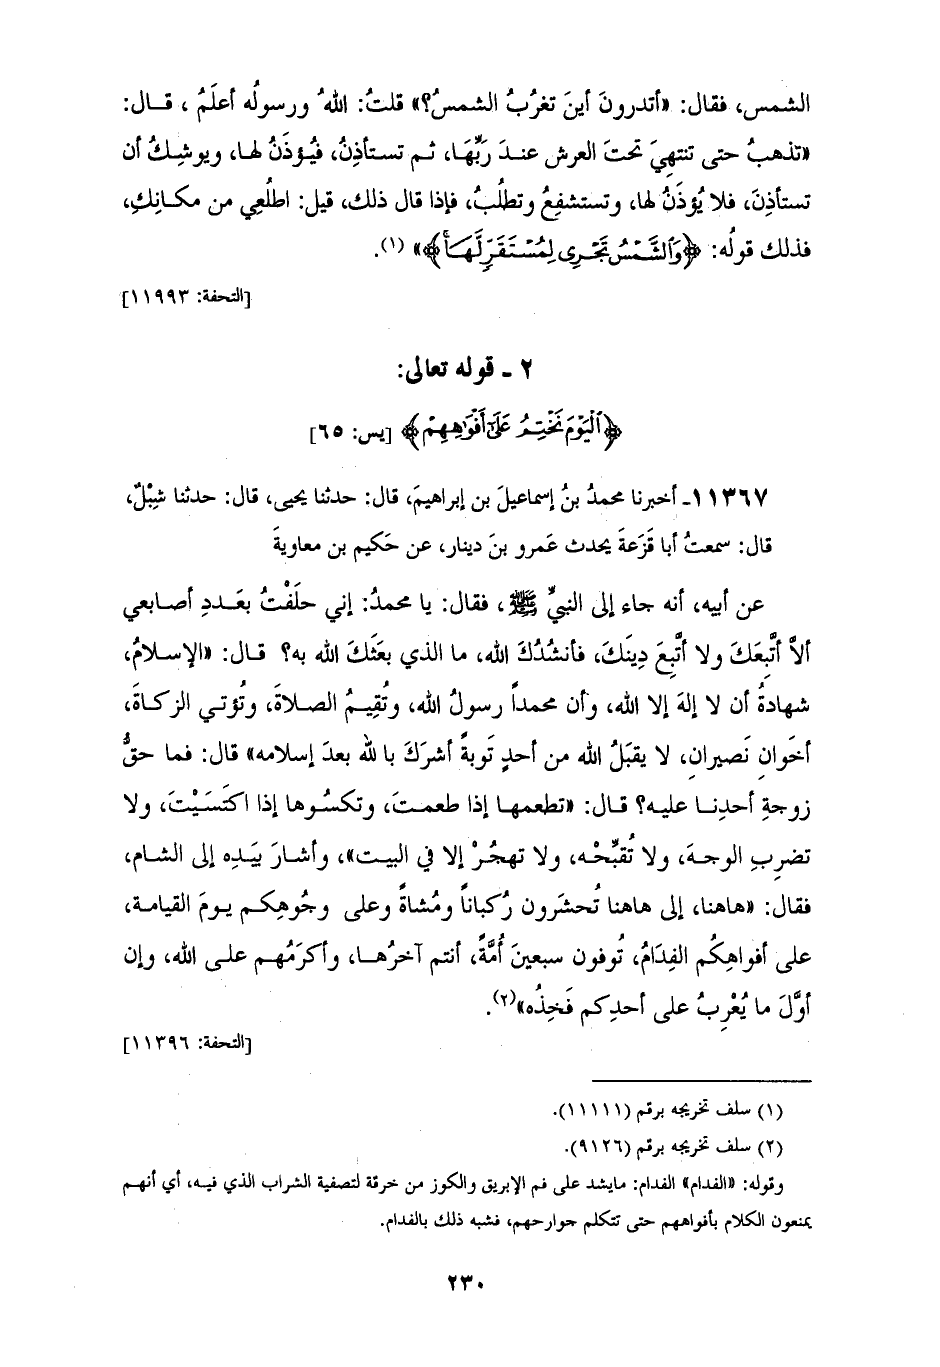 الشمس، فقال: «أتدرونَ أينَ تغرُبُ الشمسُ؟» قلتُ: اللهُ ورسولُه أعلَمُ ، قـال:
«تذهبُ حتى تنتهيَ تحتَ العرش عنـدَ رَبِّهَـا، ثـم تستـأذِنُ، فيُـؤذَنُ لهـا، ويوشِـكُ أن
تستأذِنَ، فلا يُؤذَنُ لها، وتستشفِعُ وتطلُبُ، فإذا قال ذلك، قيل: اطلُعِي من مكـانِكِ،
فذلك قولُه: ﴿وَٱلشَّمْسُ تَجْرِى لِمُسْتَقَرٍّ لَّهَا﴾» (١).
[التحفة: ١١٩٩٣]
٢ ـ قوله تعالى:
﴿ٱلْيَوْمَ نَخْتِمُ عَلَىٰٓ أَفْوَٰهِهِمْ﴾ [يس: ٦٥]
١١٣٦٧ـ أخبرنا محمدُ بنُ إسماعيلَ بن إبراهيمَ، قال: حدثنا يحيى، قال: حدثنا شِبْلٌ،
قال: سمعتُ أبا قَزَعةَ يحدث عَمرو بنَ دينار، عن حَكيم بن معاويةَ
عن أبيه، أنه جاء إلى النبيِّ ﷺ ، فقال: يا محمدُ: إني حلَفْتُ بعَـددِ أصـابعي
ألاَّ أتَّبِعَكَ ولا أتَّبِعَ دِينَكَ، فأنشُدُكَ اللهَ، ما الذي بعَثَكَ الله به؟ قـال: «الإسـلامُ،
شهادةُ أن لا إلهَ إلا الله، وأن محمداً رسولُ الله، وتُقِيمُ الصـلاةَ، وتُؤتـي الزكـاةَ،
أخَوانِ نَصيرانِ، لا يقبَلُ الله من أحدٍ تَوبةً أشرَكَ با لله بعدَ إسلامه» قال: فما حقُّ
زوجةِ أحدِنـا عليـه؟ قـال: «تطعمهـا إذا طعمـتَ، وتكسُـوها إذا اكتَسَـيْتَ، ولا
تضرِبِ الوجـهَ، ولا تُقبِّحْـه، ولا تهجُـرْ إلا في البيـت»، وأشـارَ بيَـدِه إلى الشـام،
فقال: «هاهنا، إلى هاهنا تُحشَرون رُكباناً ومُشاةً وعلى وجُوهِكـم يـومَ القيامـة،
على أفواهِكُم الفِدَامُ، تُوفون سبعينَ أُمَّةً، أنتم آخرُهـا، وأكرَمُهـم علـى الله، وإن
أوَّلَ ما يُعْرِبُ على أحدِكم فَخِذُه»(٢).
[التحفة: ١١٣٩٦]
(١) سلف تخريجه برقم (١١١١١).
(٢) سلف تخريجه برقم (٩١٢٦).
وقوله: «الفدام» الفدام: مايشد على فم الإبريق والكوز من خرقة لتصفية الشراب الذي فيـه، أي أنهـم
يمنعون الكلام بأفواههم حتى تتكلم جوارحهم، فشبه ذلك بالفدام.
٢٣٠